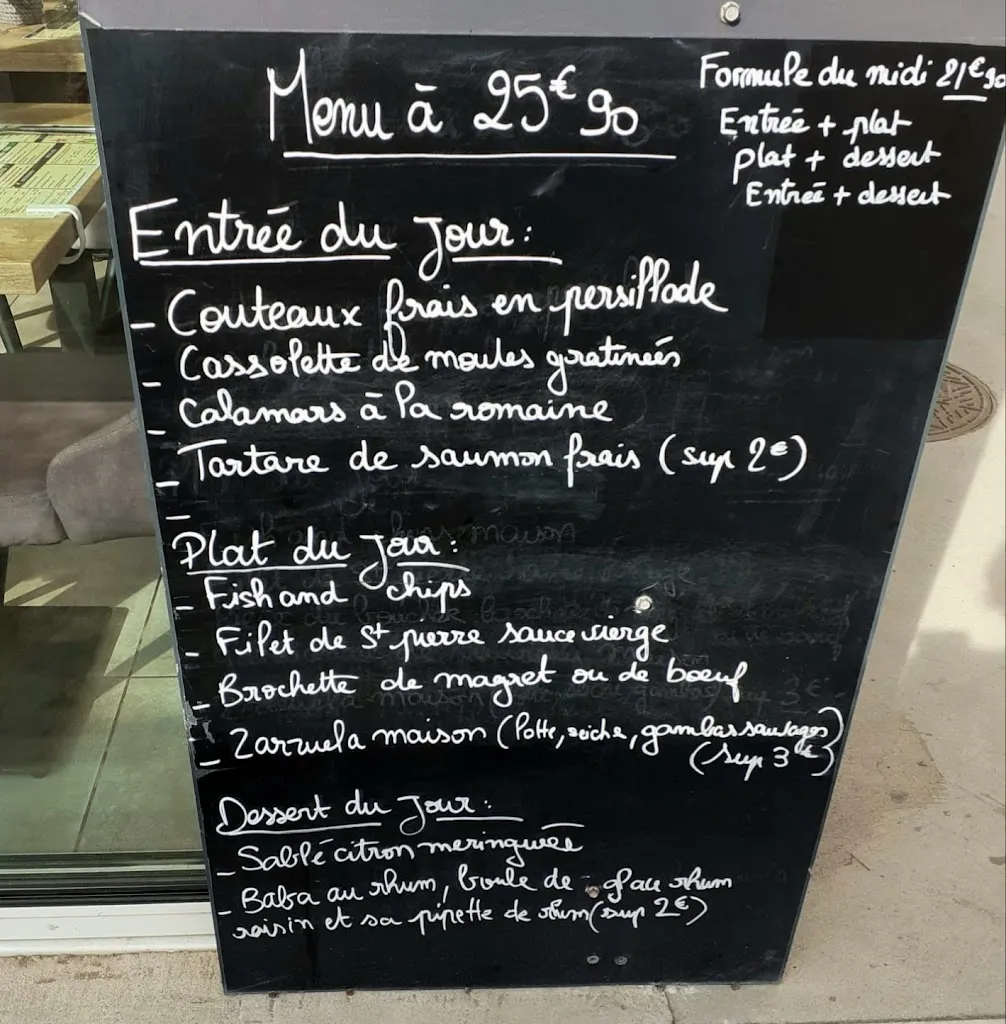 Menu à 25€90
Formule du midi 21€90
Entrée + plat
plat + dessert
Entrée + dessert
Entrée du Jour :
- Couteaux frais en persillade
- Cassolette de moules gratineés
- Calamars à la romaine
- Tartare de saumon frais (sup 2€)
-
Plat du Jour :
- Fish and chips
- Filet de St pierre sauce vierge
- Brochette de magret ou de boeuf
- Zarzuela maison (lotte, seiche, gambas sauvages)
(sup 3€)
Dessert du Jour :
- Sablé citron meringuée
- Baba au rhum, boule de glace rhum
raisin et sa pipette de rhum (sup 2€)